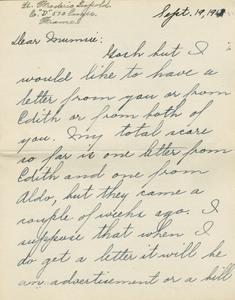 Lt. Frederic Leopold
Co "D" 530 Engrs.
France
Sept. 19, 1918
Dear Mumsie:
Gosh but I
would like to have a
letter from you or from
Edith or from both of
you. My total score
so far is one letter from
Edith and one from
Aldo, but they came a
couple of weeks ago. I
suppose that when I
do get a letter it will be
an advertisement or a bill